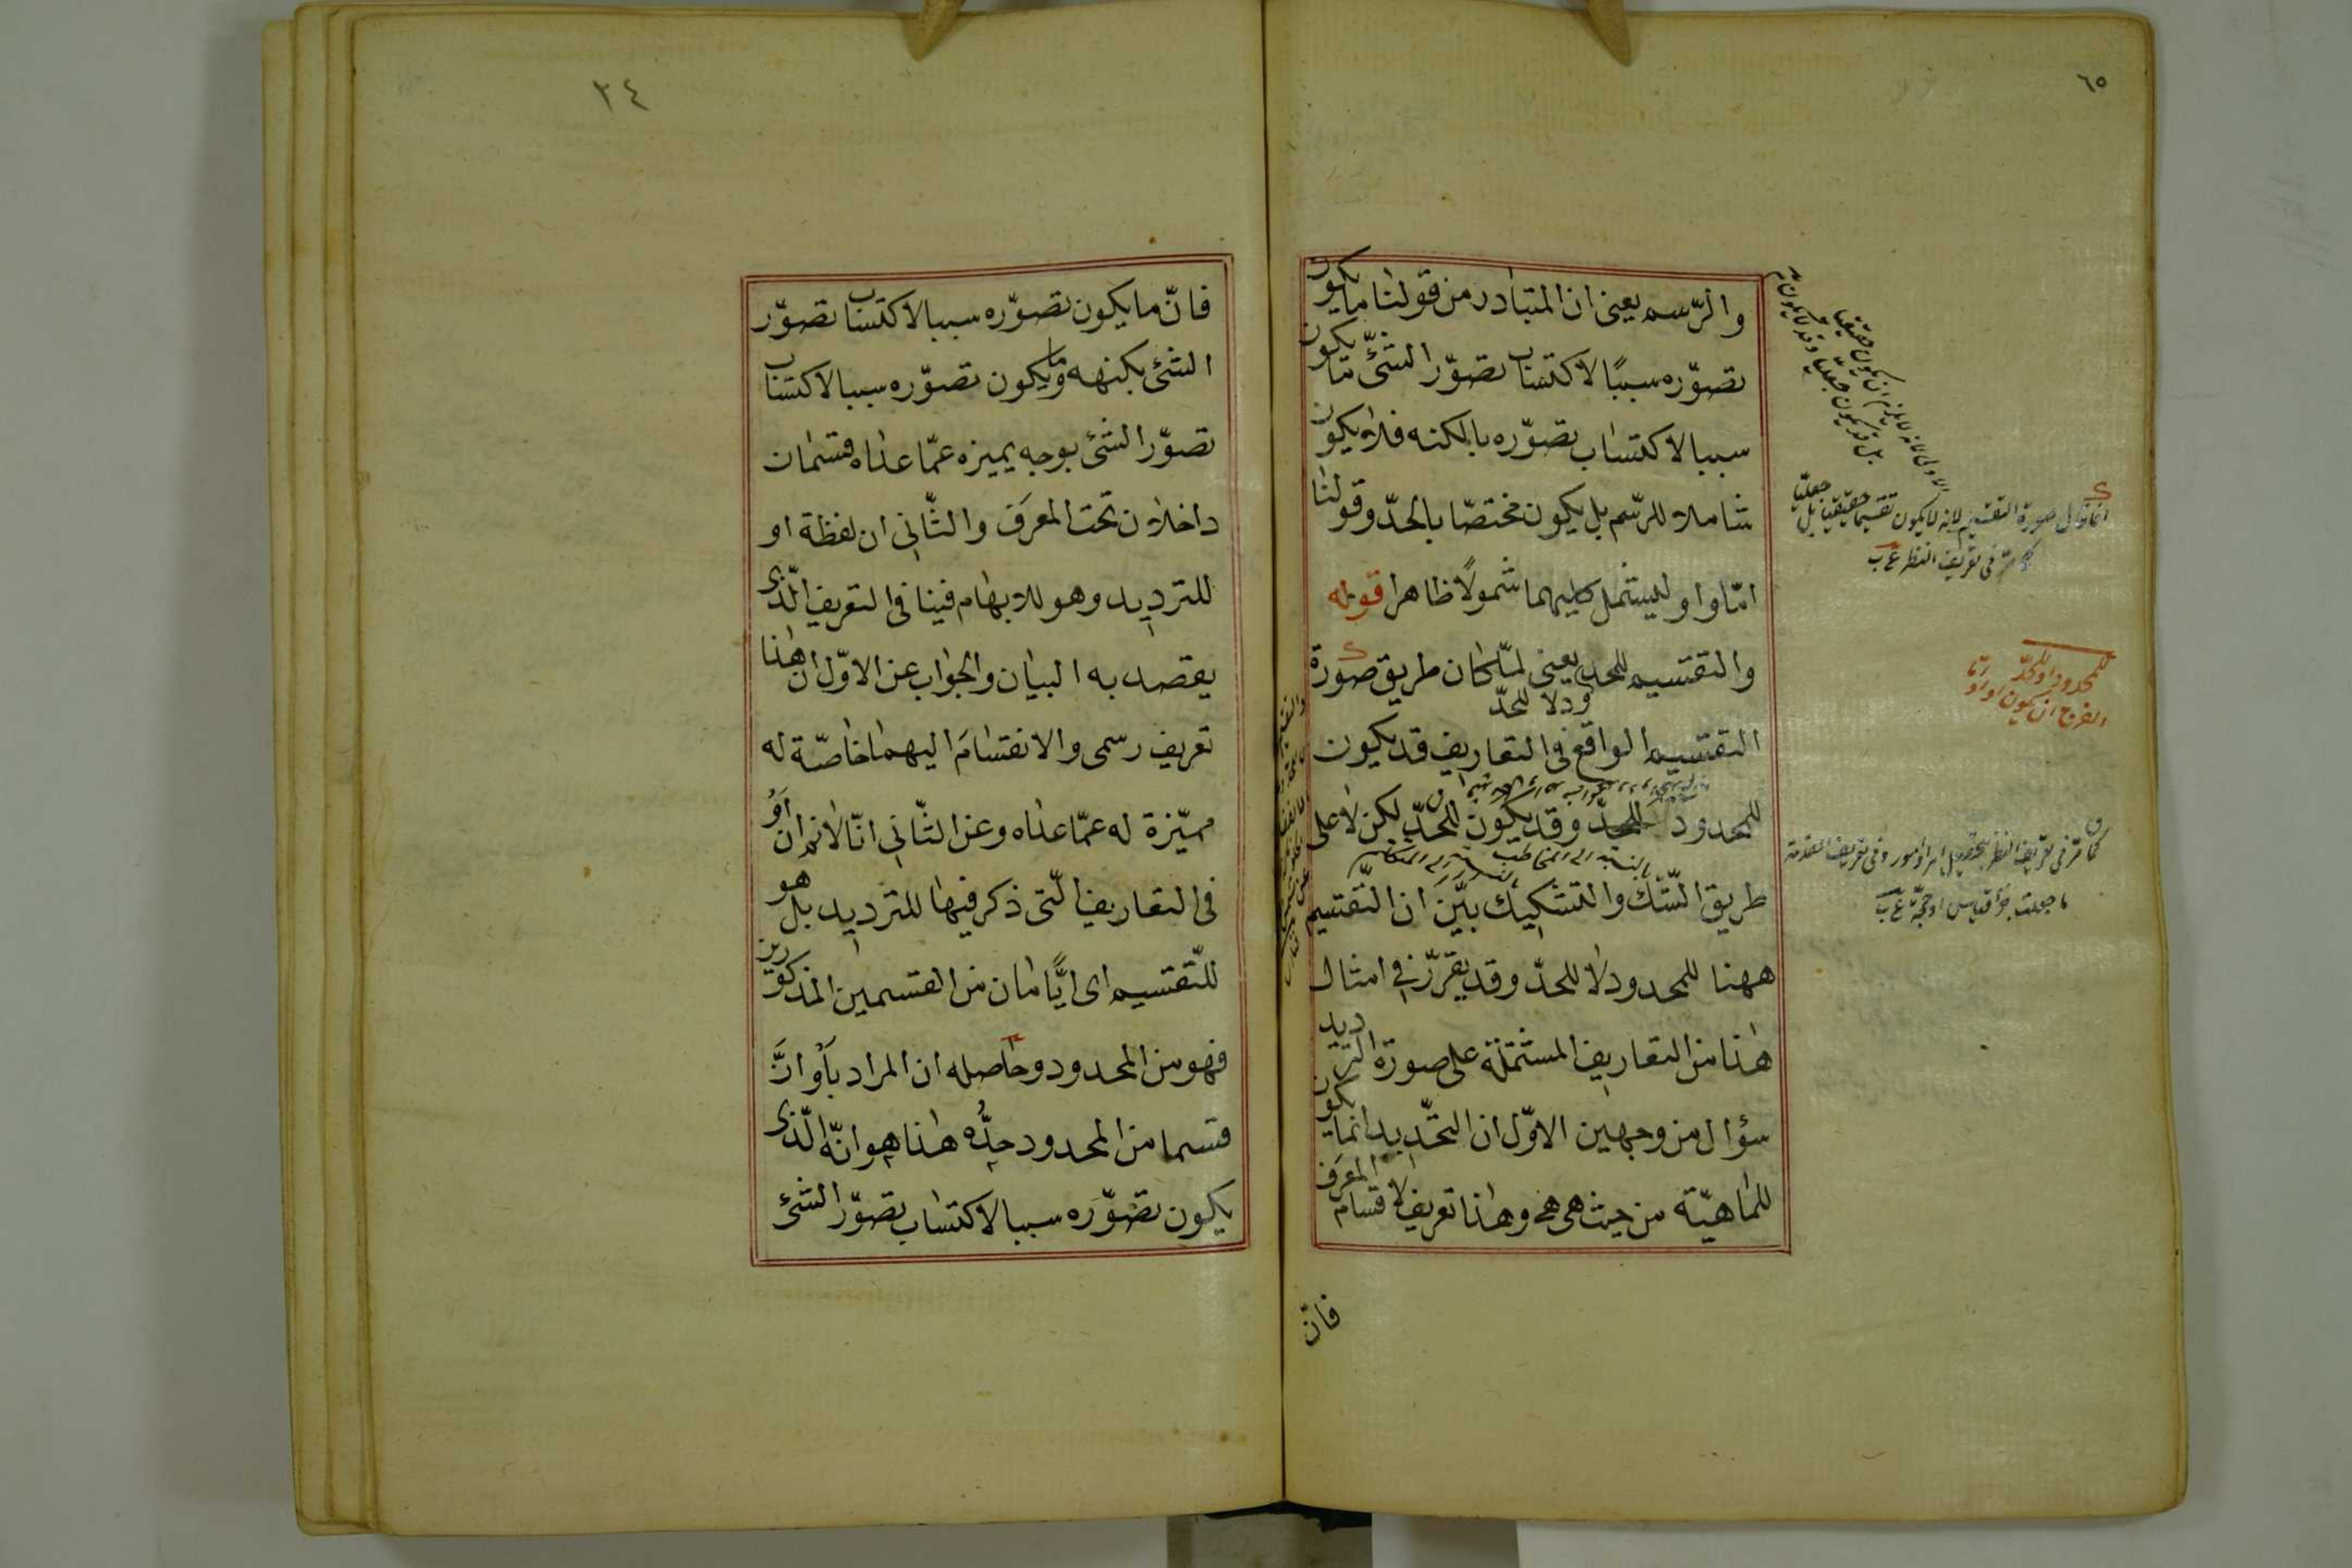 ٦٥
والرّسم يعنى ان المتبادر من قولنا ما يكون
تصوّره سببًا لاكتساب تصوّر الشئ ما يكون
سببا لاكتساب تصوّره بالكنه فلا يكون
شاملا للرّسم بل يكون مختصّا بالحدّ وقولنا
امّا واو ليشمل كليهما شمولًا ظاهرا قوله
والتقسيم للحد يعنى لمّا كان طريق صورة
التقسيم الواقع فى التعاريف قد يكون
للمحدود ولا للحدّ وقد يكون للحدّ لكن لا على
طريق الشّك والتشكيك بيّن ان التّقسيم
ههنا للمحدود لا للحدّ وقد يقرّر فى امثال
هذا من التعاريف المشتملة على صورة الترديد
سؤال من وجهين الاوّل ان التحديد انما يكون
للماهيّة من حيث هى هى وهذا تعريف لاقسام المعرف
فان
انما قال صورة التقسيم لانه لا يكون تقسيما حقيقيا بل جعليّا
كما مرّ فى تعريف النظر
للمحدود او للحدّ
كما مرّ فى تعريف النظر
ما جعلت جزء قياس او حجّة
٣٤
فانّ ما يكون تصوّره سببا لاكتساب تصوّر
الشئ بكنهه وما يكون تصوّره سببا لاكتساب
تصوّر الشئ بوجه يميزه عمّا عداه قسمان
داخلان تحت المعرف والثّانى ان لفظة او
للترديد وهو للابهام فينافى التعريف الّذى
يقصد به البيان والجواب عن الاوّل ان هذا
تعريف رسمى والانقسام اليهما خاصّة له
مميّزة له عمّا عداه وعن الثّانى انّا لانم ان او
فى التعاريف الّتى ذكر فيها للترديد بل هو
للتّقسيم اى ايًّا ما كان من القسمين المذكورين
فهو من المحدود وحاصله ان المراد باو انّ
قسما من المحدود حدّه هذا هو انّه الّذى
يكون تصوّره سببا لاكتساب تصوّر الشئ